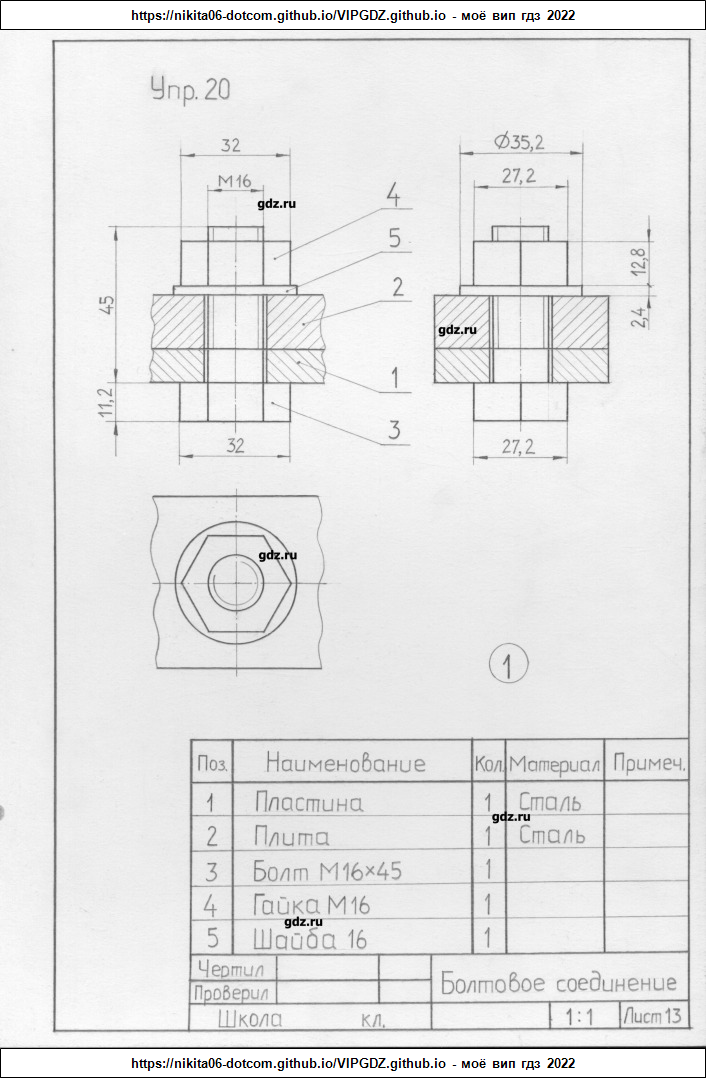 https://nikita06-dotcom.github.io/VIPGDZ.github.io - моё вип гдз 2022
Упр. 20
32
M16
gdz.ru
4
5
2
1
3
45
11,2
32
Ø35,2
27,2
12,8
2,4
gdz.ru
27,2
gdz.ru
1
Поз. Наименование Кол. Материал Примеч.
1 Пластина 1 Сталь
gdz.ru
2 Плита 1 Сталь
3 Болт М16×45 1
4 Гайка М16 1
gdz.ru
5 Шайба 16 1
Чертил
Проверил
Болтовое соединение
Школа кл.
1:1 Лист 13
https://nikita06-dotcom.github.io/VIPGDZ.github.io - моё вип гдз 2022